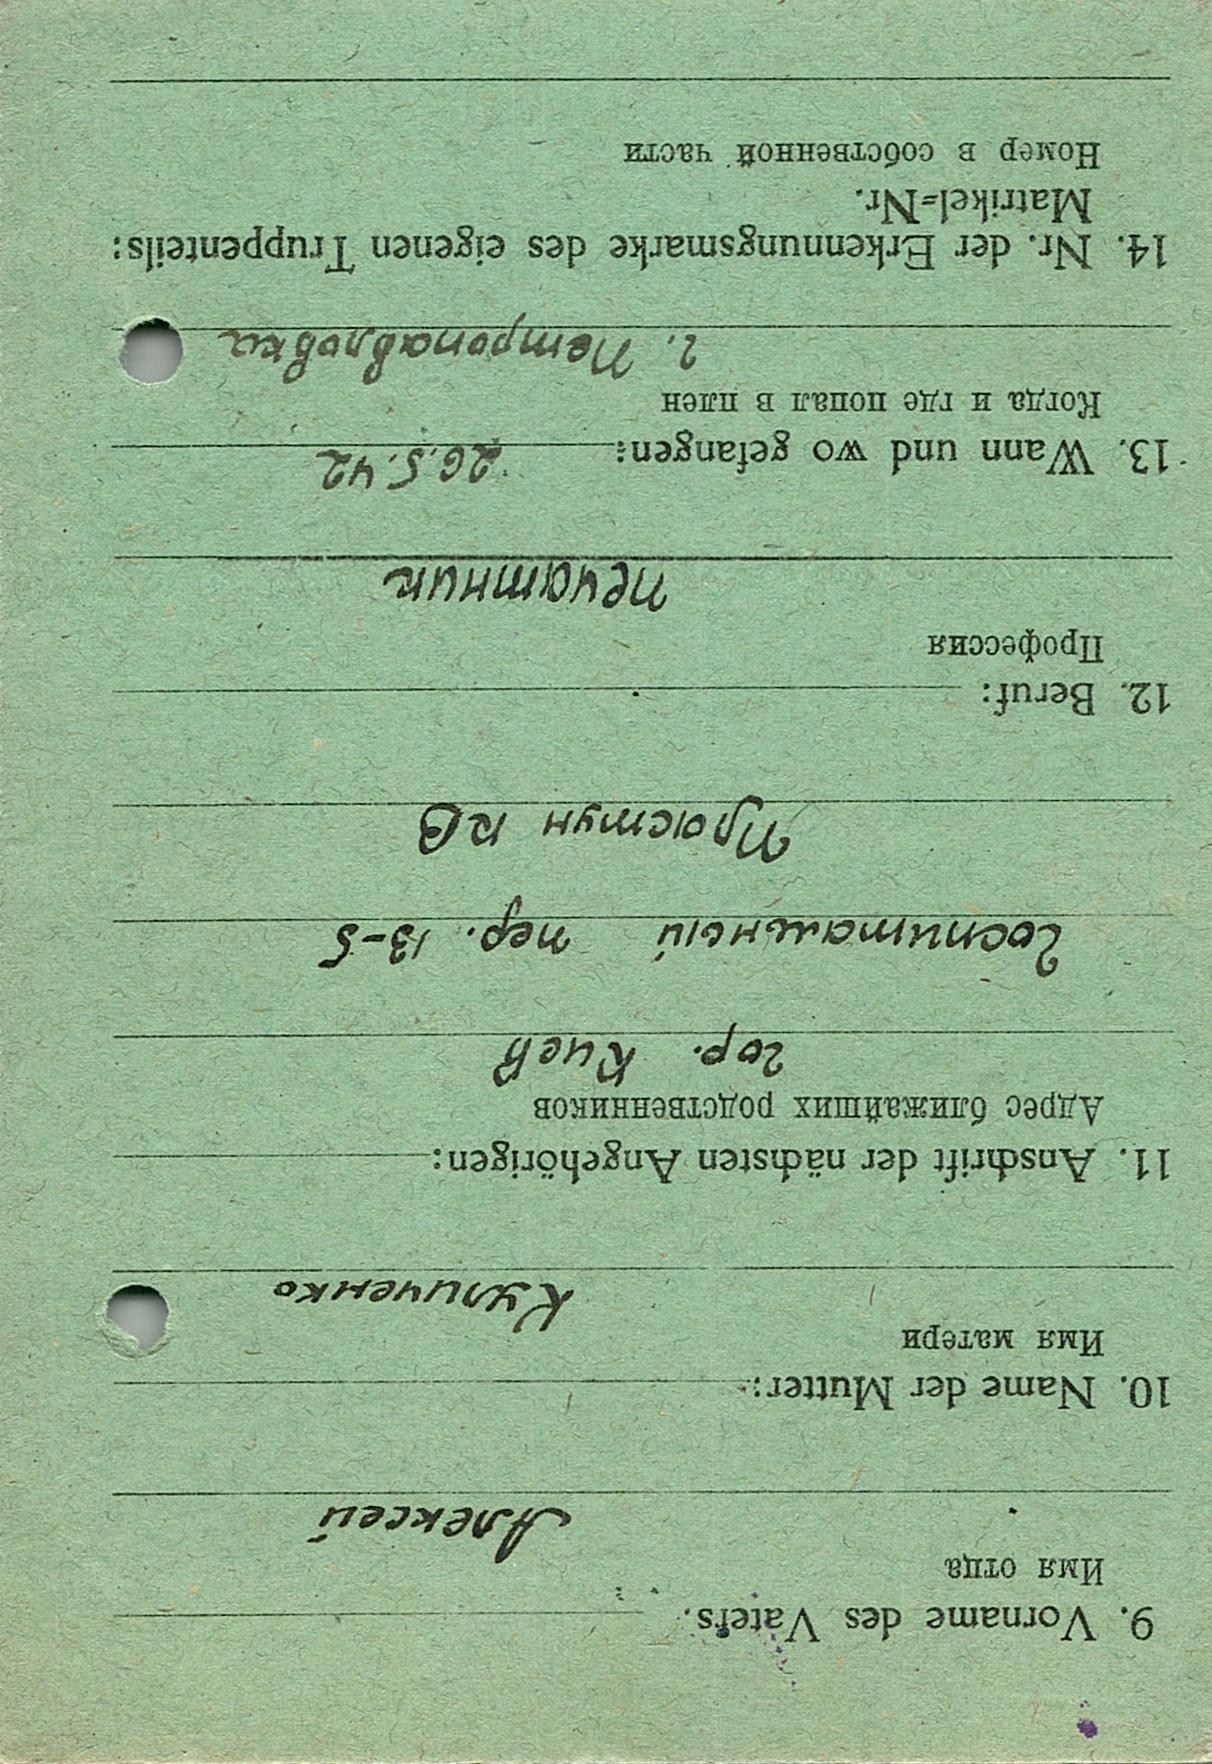 9. Vorname des Vaters.
Имя отца
Алексей
10. Name der Mutter:
Имя матери
Куличенко
11. Anschrift der nächsten Angehörigen:
Адрес ближайших родственников
гор. Киев
Госпитальный пер. 13-5
КВ
12. Beruf:
Профессия
печатник
13. Wann und wo gefangen: 26.5.42
Когда и где попал в плен
г. Петропавловка
14. Nr. der Erkennungsmarke des eigenen Truppenteils:
Matrikel=Nr.
Номер в собственной части